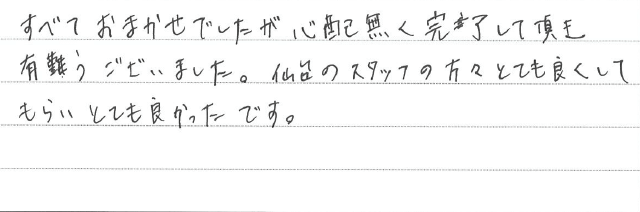 すべておまかせでしたが心配無く完了して頂き
有難うございました。仙台のスタッフの方々とても良くして
もらいとても良かったです。